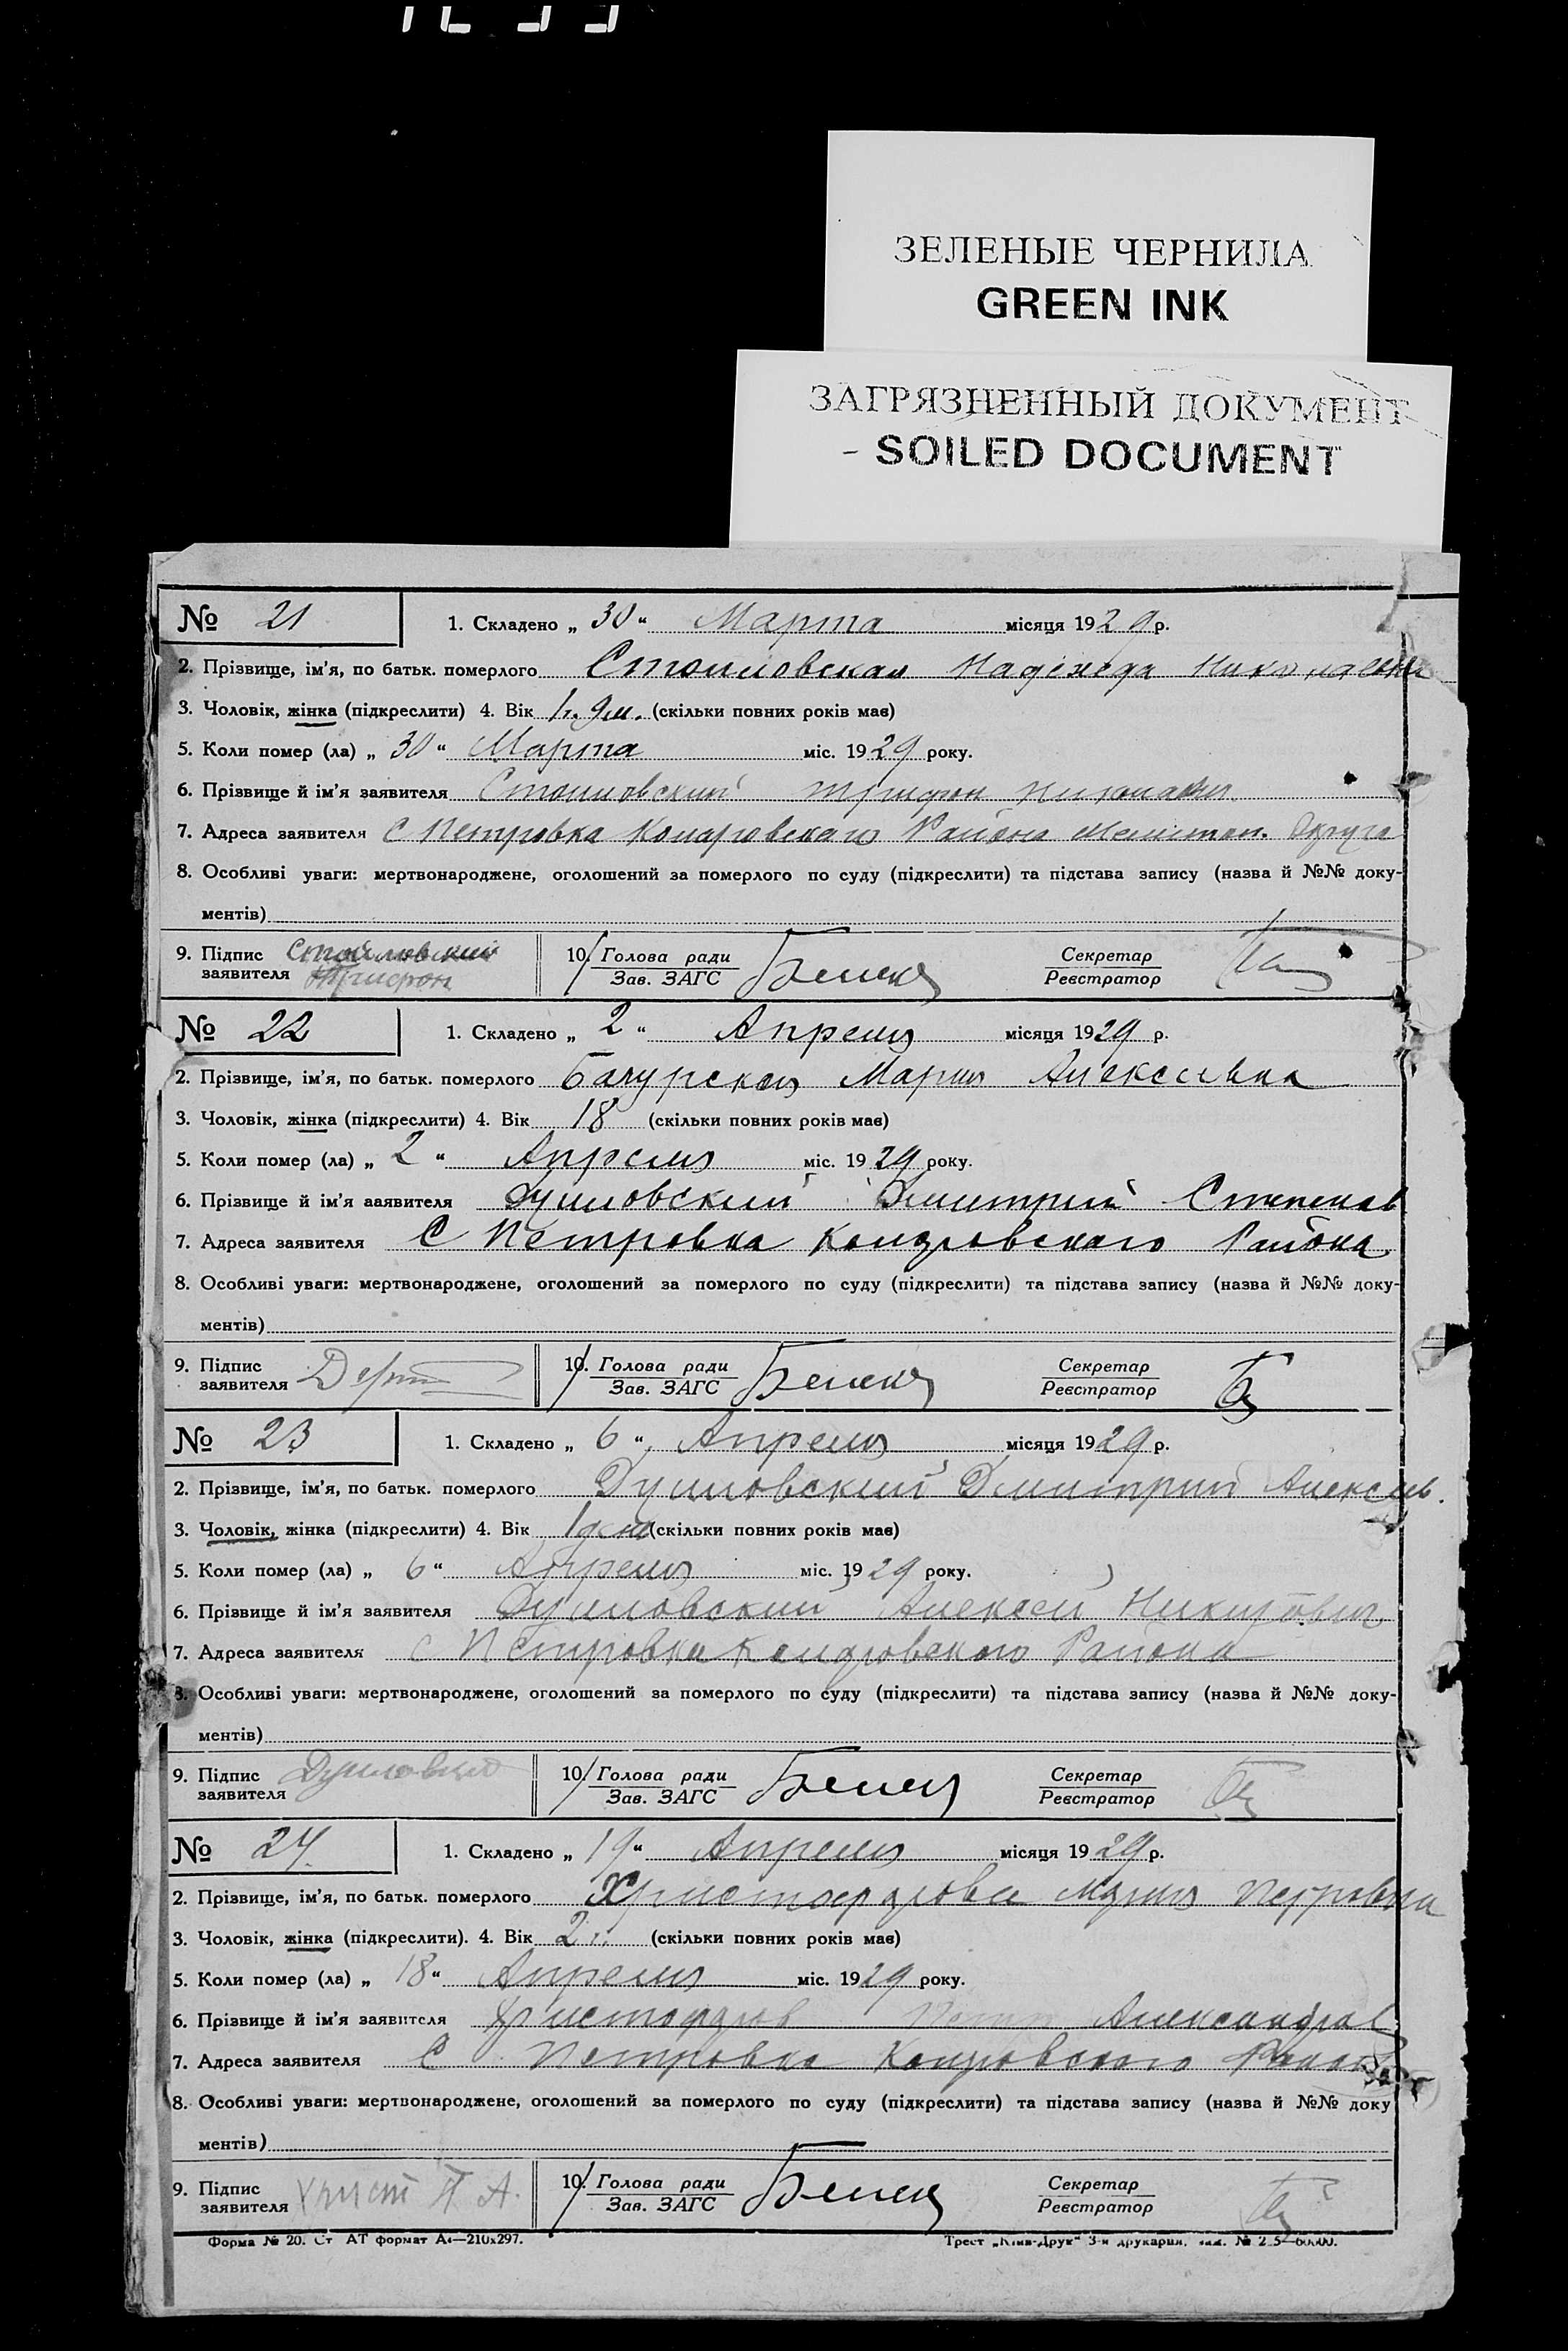 ЗЕЛЕНЫЕ ЧЕРНИЛА
GREEN INK
ЗАГРЯЗНЕННЫЙ ДОКУМЕНТ
- SOILED DOCUMENT
№ 21 1. Складено „ 30 “ Марта місяця 1929 р.
2. Прізвище, ім'я, по батьк. померлого Стоиловская Надежда Николаевна
3. Чоловік, жінка (підкреслити) 4. Вік 1 г. 9 м. (скільки повних років має)
5. Коли помер (ла) „ 30 “ Марта міс. 1929 року.
6. Прізвище й ім'я заявителя Стоиловский Трифон
7. Адреса заявителя с Петровка Района Округа
8. Особливі уваги: мертвонароджене, оголошений за померлого по суду (підкреслити) та підстава запису (назва й №№ доку-
ментів)
9. Підпис заявителя Стойловский Трифон 10. Голова ради Зав. ЗАГС Секретар Реєстратор
№ 22 1. Складено „ 2 “ Апреля місяця 1929 р.
2. Прізвище, ім'я, по батьк. померлого Мария Алексеевна
3. Чоловік, жінка (підкреслити) 4. Вік 18 (скільки повних років має)
5. Коли помер (ла) „ 2 “ Апреля міс. 1929 року.
6. Прізвище й ім'я заявителя Дмитрий Степанов
7. Адреса заявителя С Петровка Района
8. Особливі уваги: мертвонароджене, оголошений за померлого по суду (підкреслити) та підстава запису (назва й №№ доку-
ментів)
9. Підпис заявителя 10. Голова ради Зав. ЗАГС Секретар Реєстратор
№ 23 1. Складено „ 6 “ Апреля місяця 1929 р.
2. Прізвище, ім'я, по батьк. померлого Дмитрий Алексеев.
3. Чоловік, жінка (підкреслити) 4. Вік (скільки повних років має)
5. Коли помер (ла) „ 6 “ Апреля міс. 1929 року.
6. Прізвище й ім'я заявителя Алексей
7. Адреса заявителя с Петровка Района
8. Особливі уваги: мертвонароджене, оголошений за померлого по суду (підкреслити) та підстава запису (назва й №№ доку-
ментів)
9. Підпис заявителя 10. Голова ради Зав. ЗАГС Секретар Реєстратор
№ 24. 1. Складено „ 19 “ Апреля місяця 1929 р.
2. Прізвище, ім'я, по батьк. померлого Христофорова Мария Петровна
3. Чоловік, жінка (підкреслити). 4. Вік 2 г. (скільки повних років має)
5. Коли помер (ла) „ 18 “ Апреля міс. 1929 року.
6. Прізвище й ім'я заявителя Христофоров Петр Александров
7. Адреса заявителя С Петровка Района
8. Особливі уваги: мертвонароджене, оголошений за померлого по суду (підкреслити) та підстава запису (назва й №№ доку
ментів)
9. Підпис заявителя Христ П А. 10. Голова ради Зав. ЗАГС Секретар Реєстратор
Форма № 20. Ст АТ формат А4—210х297. Трест „Київ-Друк“ 3-я друкарня,